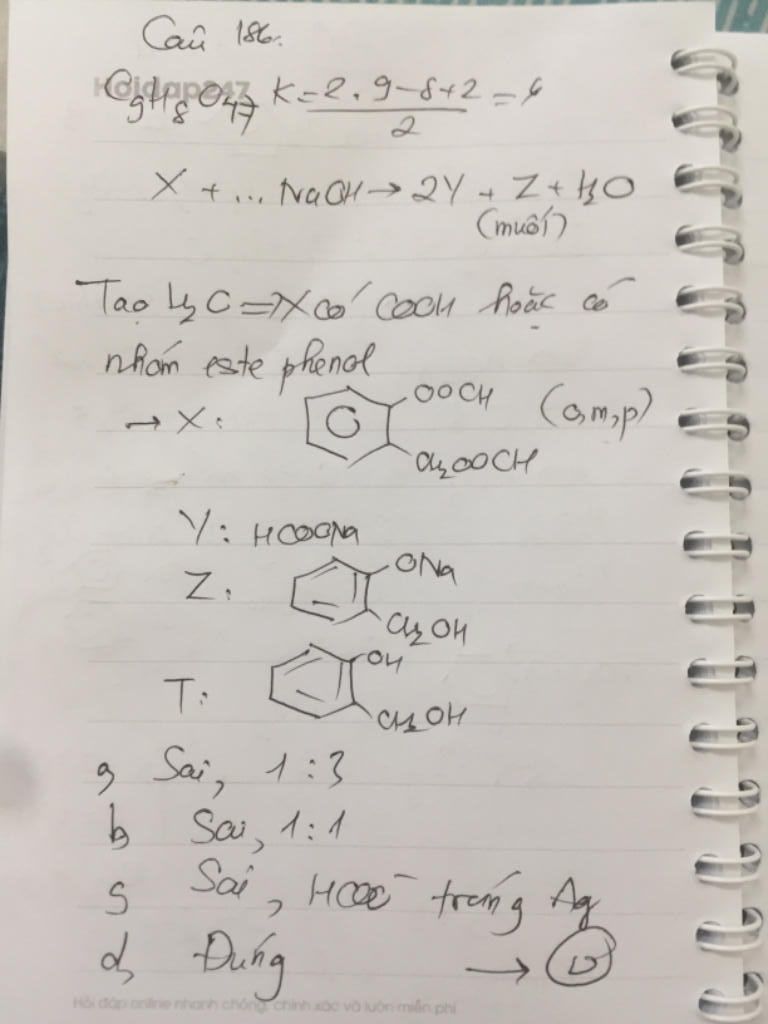 Câu 186.
Hoidap247
C₉H₈O₄, K = (2.9-8+2)/2 = 6
X + ... NaOH → 2Y + Z + H₂O
(muối)
Tạo H₂O => X có COOH hoặc có
nhóm este phenol
→ X: OOCH (o,m,p)
CH₂OOCH
Y: HCOONa
Z: ONa
CH₂OH
T: OH
CH₂OH
a, Sai, 1:3
b, Sai, 1:1
c, Sai, HCOO⁻ tráng Ag
d, Đúng →
Hỏi đáp online nhanh chóng, chính xác và luôn miễn phí